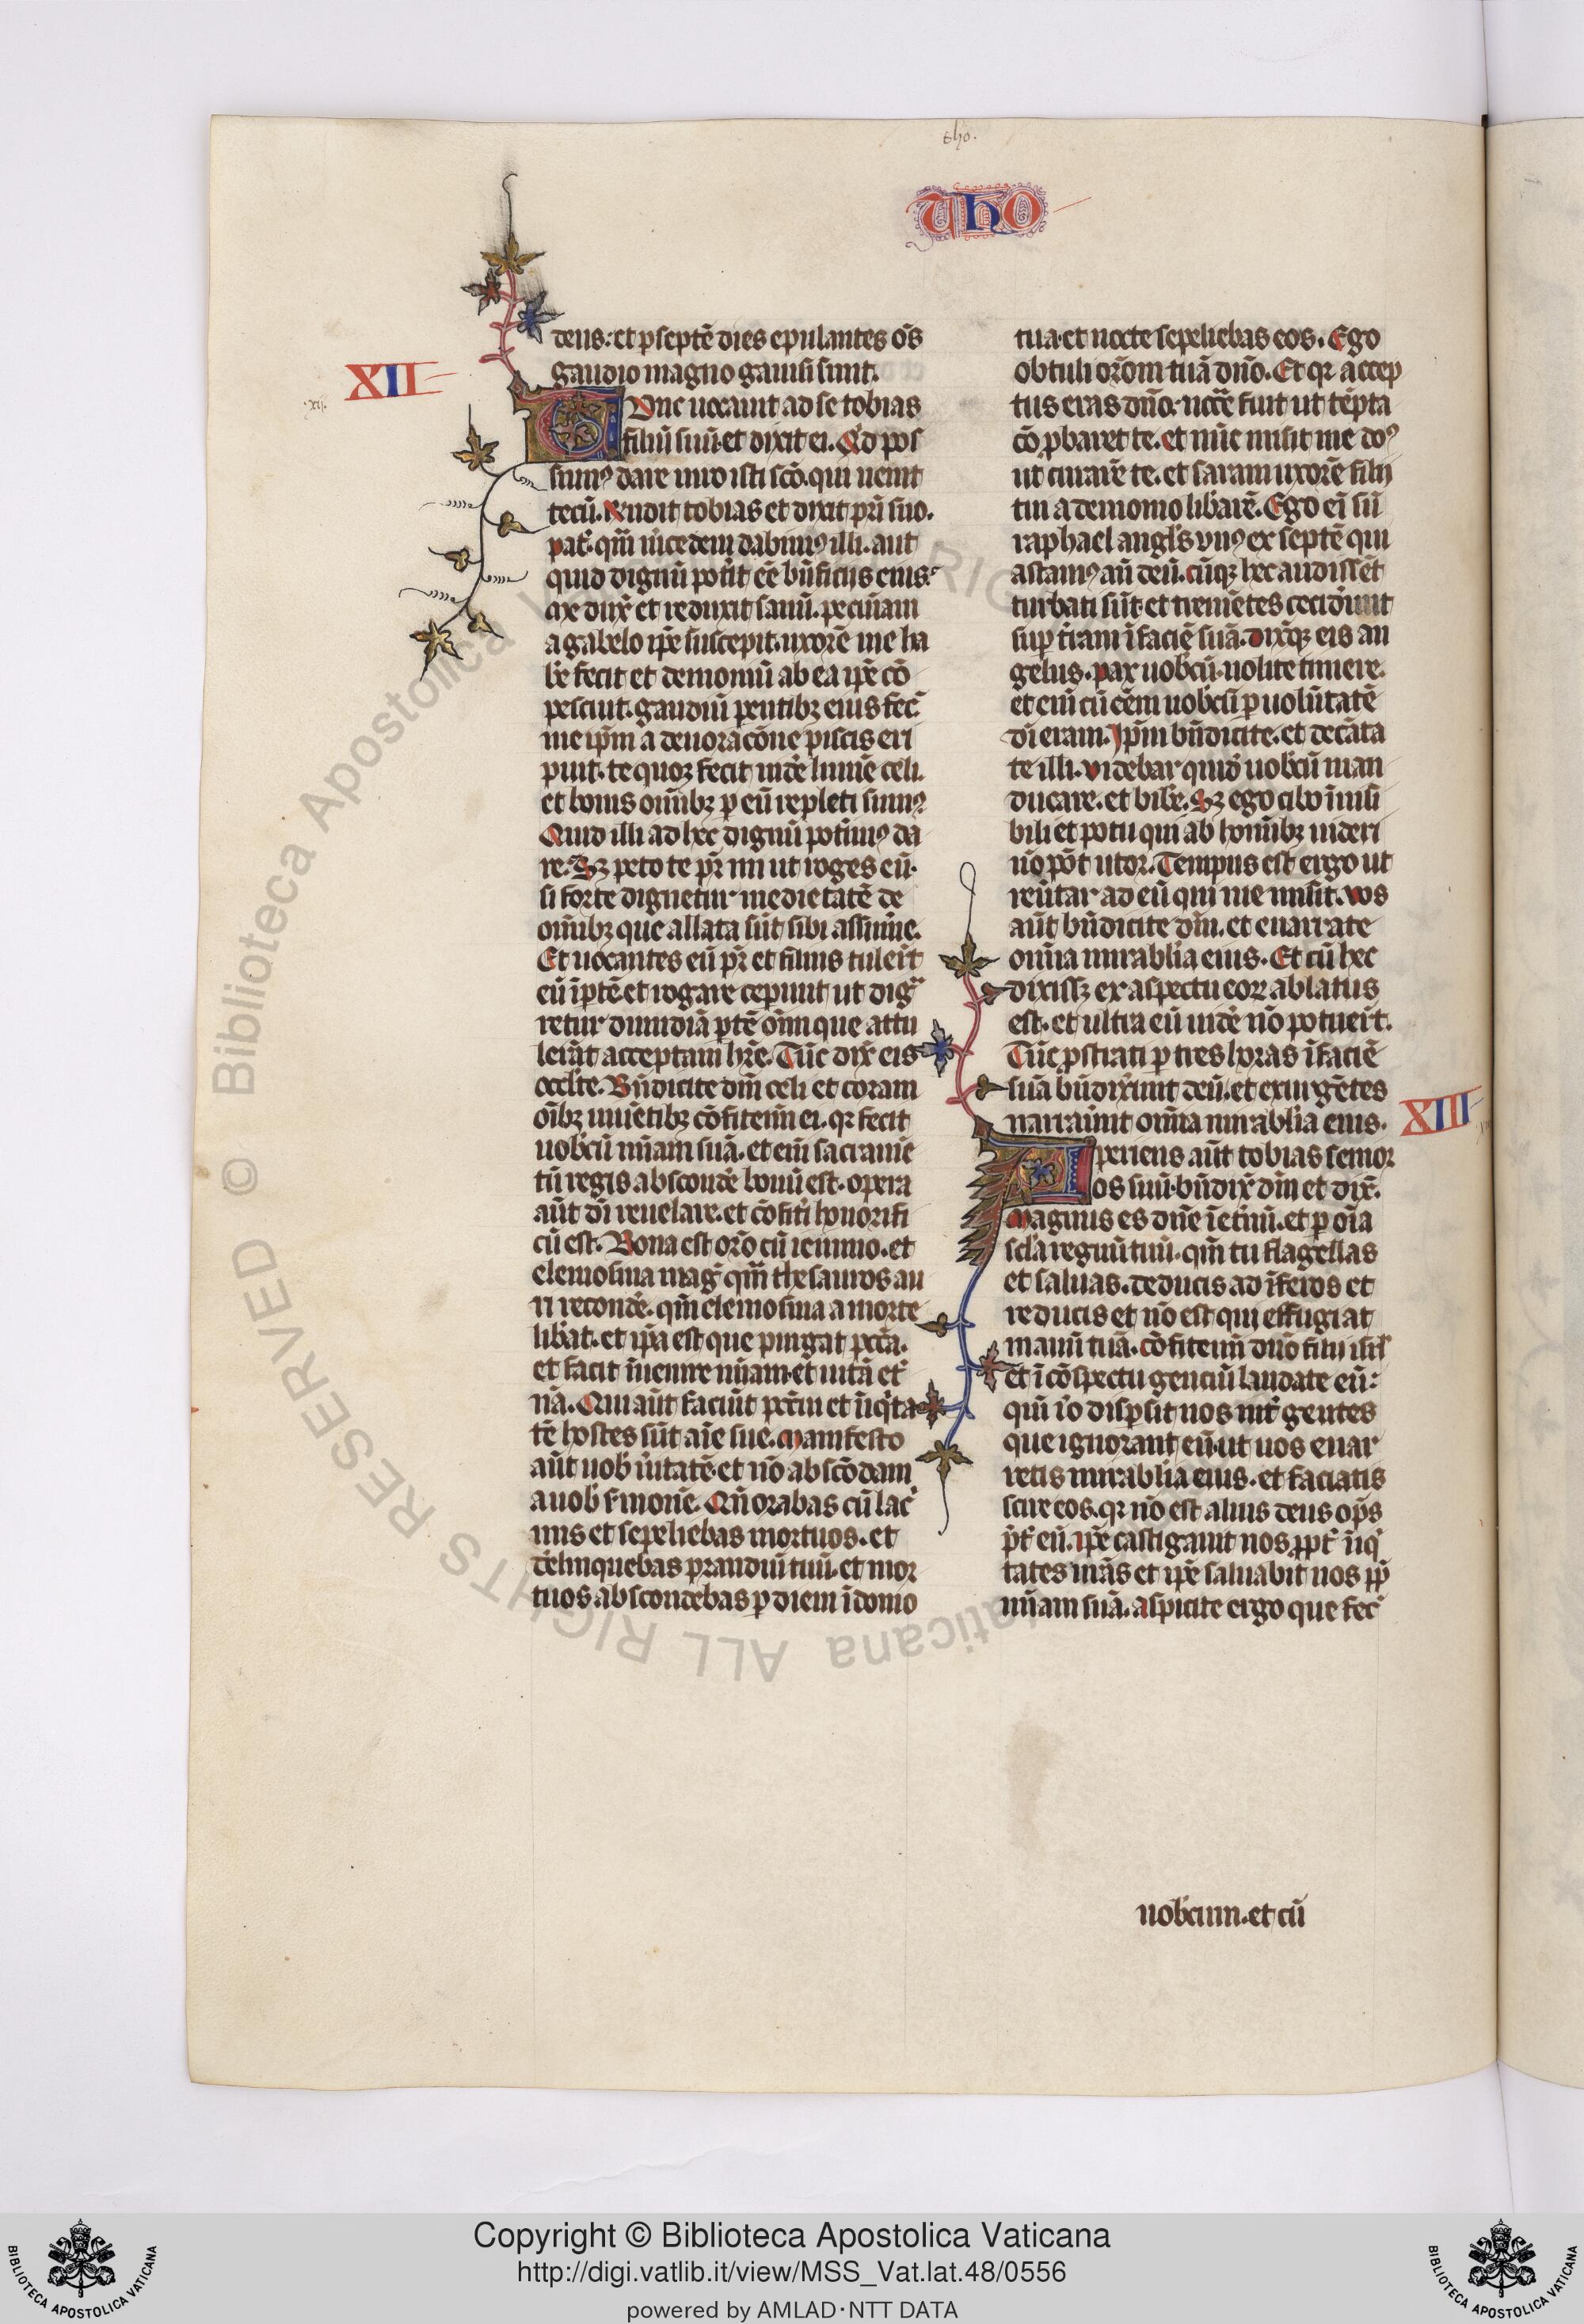 tho.
THO
deus: et p septē dies epulantes om̄s
gaudio magno gauisi sunt.
XII
Tunc uocauit ad se tobias
filiū suū et dixit ei. Qͥd pos
sumꝰ dare uiro isti scō. qui uenit
tecū. Rñdit tobias et dixit pr̄i suo.
pat̾. qm̄ m̾cedem dabimꝰ illi. aut
quid dignū pot̾it eē bn̄ficijs eius.
me dux̾ et reduxit sanū. pecuniam
a gabelo ip̄e suscepit. uxorē me ha
b̾e fecit et demoniū ab ea ip̄e cō
pescuit. gaudiū pentibꝫ eius fec̾
me ip̄m a deuoracōne piscis eri
puit. te quoꝫ fecit uid̾e lumē celi.
et bonis om̄ibꝫ p eū repleti sumꝰ
Quid illi ad hec dignū pot̾imꝰ da
re. Sꝫ peto te pr̄ mi ut roges eū.
si forte dignetur medietatē de
om̄ibꝫ que allata sūt sibi assum̾e.
Et uocantes eū pr̄ et filius tuler̄t
eū ī ptē et rogare ceperunt ut digͣ
retur dimidiā ptē om̄i que attu
lerāt acceptam hr̄e. Tūc dix̾ eis
occl̾te. Bn̄dicite dm̄ celi et coram
oīb; uiuētibꝫ cōfitem̄i ei. qꝛ fecit
uobcū mīam suā. et em̄ sacramē
tū regis absconde̾ bonū est. opera
aūt dī reuelare. et cōfit̾i honorifi
cū est. Bona est or̄o cū ieiunio. et
elemosina mag̾ qm̄ thesauros au
ri recond̾e. qm̄ elemosina a morte
lib̾at. et ip̄a est que purgat pcc̄a.
et facit īuenire mīam et uitā et̾
nā. Qui aūt faciūt pcc̄m et iniqͥta
tē hostes sūt aīe sue. Manifesto
aūt uob̾ u̾itatē et nō abscōdam
a uob̾ s̾monē. Qn̄ orabas cū lac̾
mis et sepeliebas mortuos. et
d̾elinquebas prandiū tuū. et mor
tuos abscondebas p diem ī domo
tua et nocte sepeliebas eos. Ego
obtuli or̄om tuā dn̄o. Et qꝛ accep
tus eras dn̄o: necc̄e fuit ut tēpta
cō pbaret te. et nūc misit me dn̄ꝰ
ut curarē te. et saram uxorē filij
tui a demonio lib̾arē. Ego em̄ sū
raphael angl̾s vnꝰ ex septē qui
astamꝰ an̄ deū. cūqꝫ hec audissēt
turbati sūt et tremētes cecid̾unt
sup t̾ram ī faciē suā. dixitqꝫ eis an
gelus. pax uobcū. nolite timere.
et eni cū eēm uobcū p uolūtatē
dī eram. Ip̄m bn̄dicite. et decāta
te illi. videbar quid̾ uobcū man
ducare. et bib̾e. Sꝫ ego cibo īuisi
bili et potu qui ab hom̄ibꝫ uideri
nō pōt utor. Tempus est ergo ut
reu̾tar ad eū qui me misit. vos
aūt bn̄dicite dm̄. et enarrate
omīa mirabl̾ia eius. Et cū hec
dixissꝫ ex aspectu eoꝝ ablatus
est. et ultra eū uid̾e nō potuer̄t.
Tūc pstrati p tres horas ī faciē
suā bn̄dixerunt deū. et exurgētes
narrauer̄t omīa mirabl̾ia eius.
XIII
Aperiens aūt tobias senior
os suū. bn̄dix̾ dm̄ et dix̾.
Magnus es dn̄e ī et̾nū. et p oīa
scl̾a regnū tuū. qm̄ tu flagellas
et saluas. deducis ad īferos et
reducis et nō est qui effugiat
manū tuā. cōfitem̄i dn̄o filij isrl̾
et ī cōspectu genciū laudate eū:
qm̄ iͦo dispsit uos int̾ gentes
que ignorant eū. ut uos enar
retis mirabl̾ia eius. et faciatis
scire eos. qꝛ nō est alius deus op̄s
pͭ eū. ip̄e castigauit nos ꝓpt̾ iniqͥ
tates nr̄as et ip̄e saluabit nos ꝓp̄
mīam suā. aspicite ergo que fec̾
uobcum. et cū
Copyright © Biblioteca Apostolica Vaticana
http://digi.vatlib.it/view/MSS_Vat.lat.48/0556
powered by AMLAD·NTT DATA
BIBLIOTECA APOSTOLICA VATICANA
BIBLIOTECA APOSTOLICA VATICANA